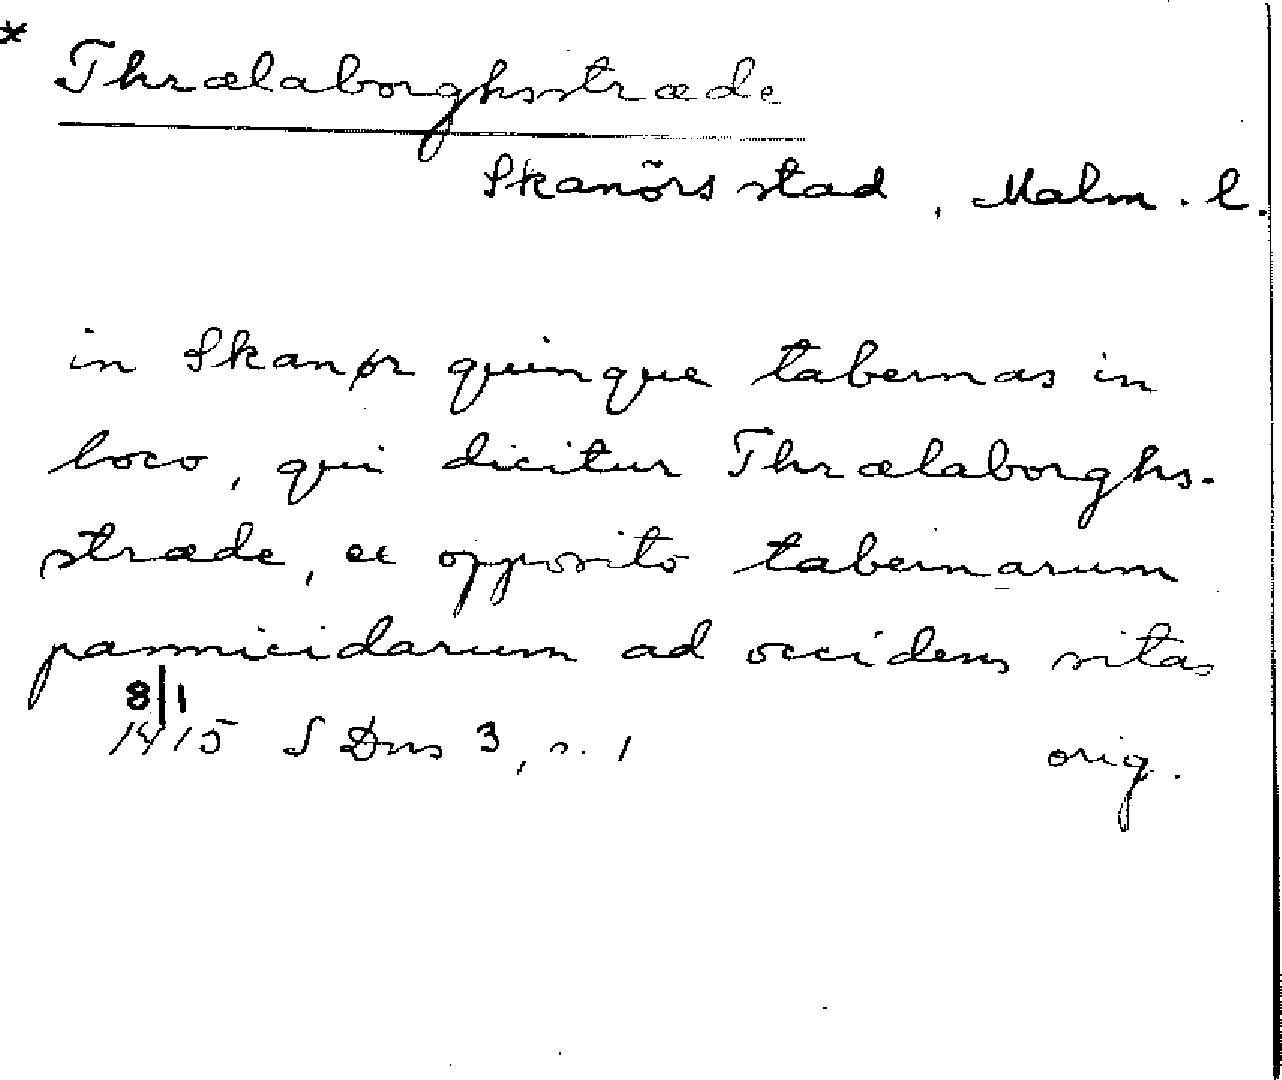 * Thrælaborghsstræde
Skanörs stad, Malm. l.
in Skanør quinque tabernas in
loco, qui dicitur Thrælaborghs-
stræde, ex opposito tabernarum
pannicidarum ad occidens sitas
8/1
1415 SDns 3, s. 1 orig.